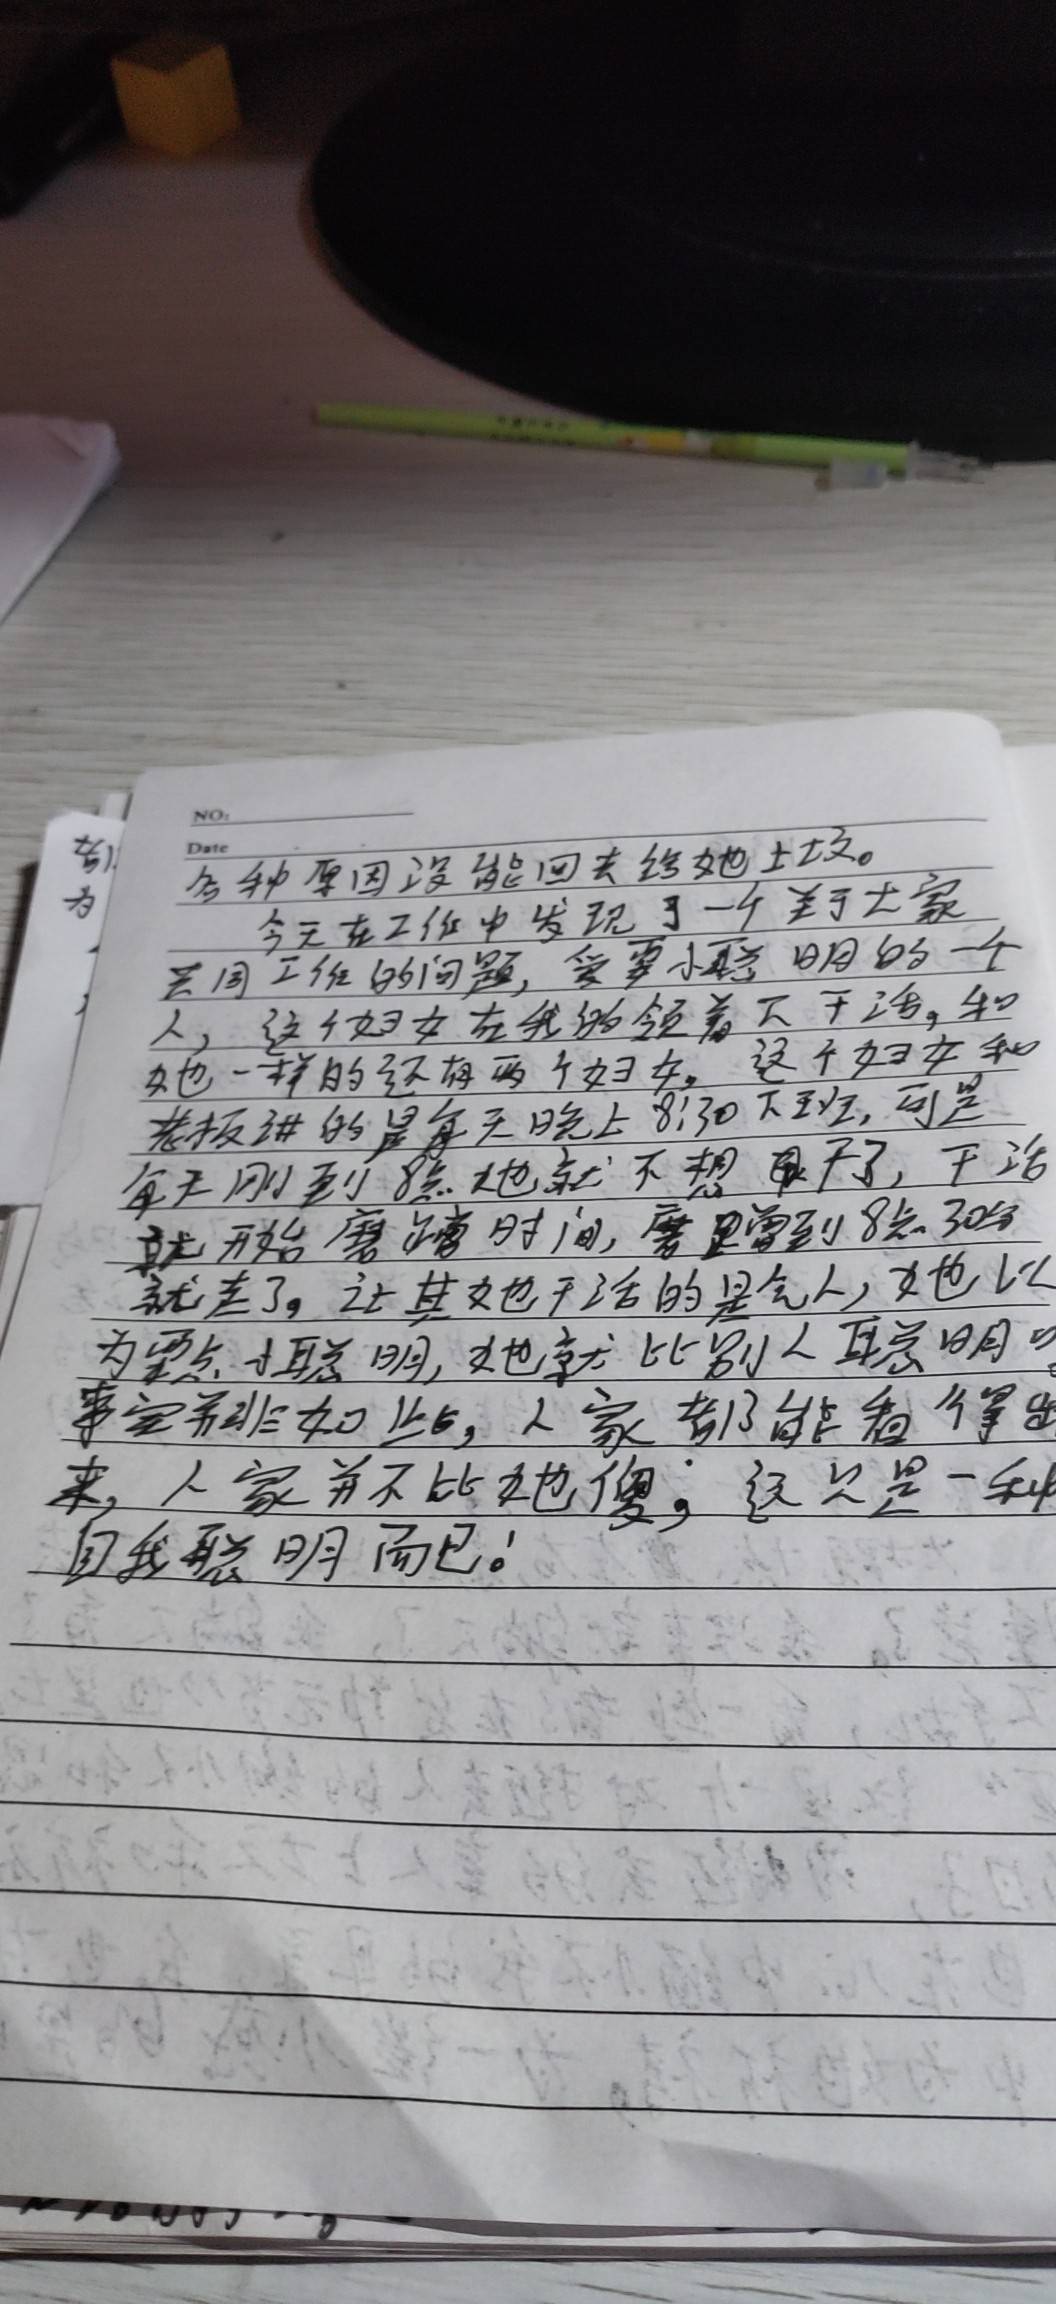 NO:
Date
各种原因没能回去给她上坟。
今天在工作中发现了一个关于大家
共同工作的问题，爱耍小聪明的一个
人，这个妇女在我的领着下干活，和
她一样的还有两个妇女。这个妇女和
老板讲的是每天晚上8:30下班，可是
每天刚到8点她就不想干了，干活
就开始磨蹭时间，磨蹭到8点30分
就走了。让其她干活的是气人，她以
为耍点小聪明，她就比别人聪明
事实并非如此，人家都能看得出
来，人家并不比她傻；这只是一种
自我聪明而已！